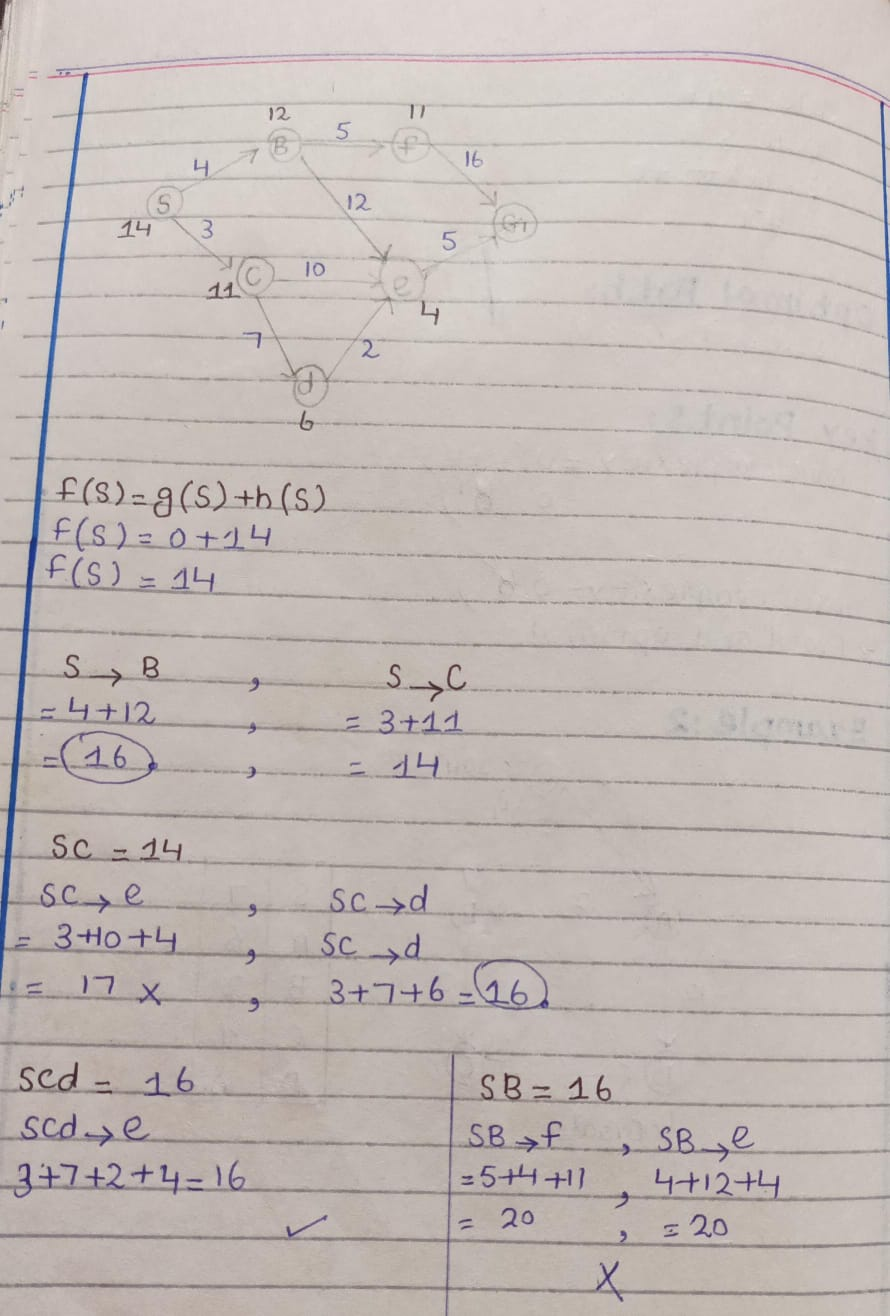 12 11
B 5 f
4 16
S 12 G
14 3 5
C 10 e
11 4
7 2
d
6
f(S)=g(S)+h(S)
f(S) = 0+14
f(S) = 14
S → B , S → C
= 4+12 , = 3+11
= 16. , = 14
SC = 14
SC → e , SC → d
= 3+10+4 , SC → d
= 17 x , 3+7+6 = 16.
Scd = 16
Scd → e
3+7+2+4=16
✓
SB = 16
SB → f , SB → e
=5+4+11 , 4+12+4
= 20 , = 20
X
Key Points:
Example:2